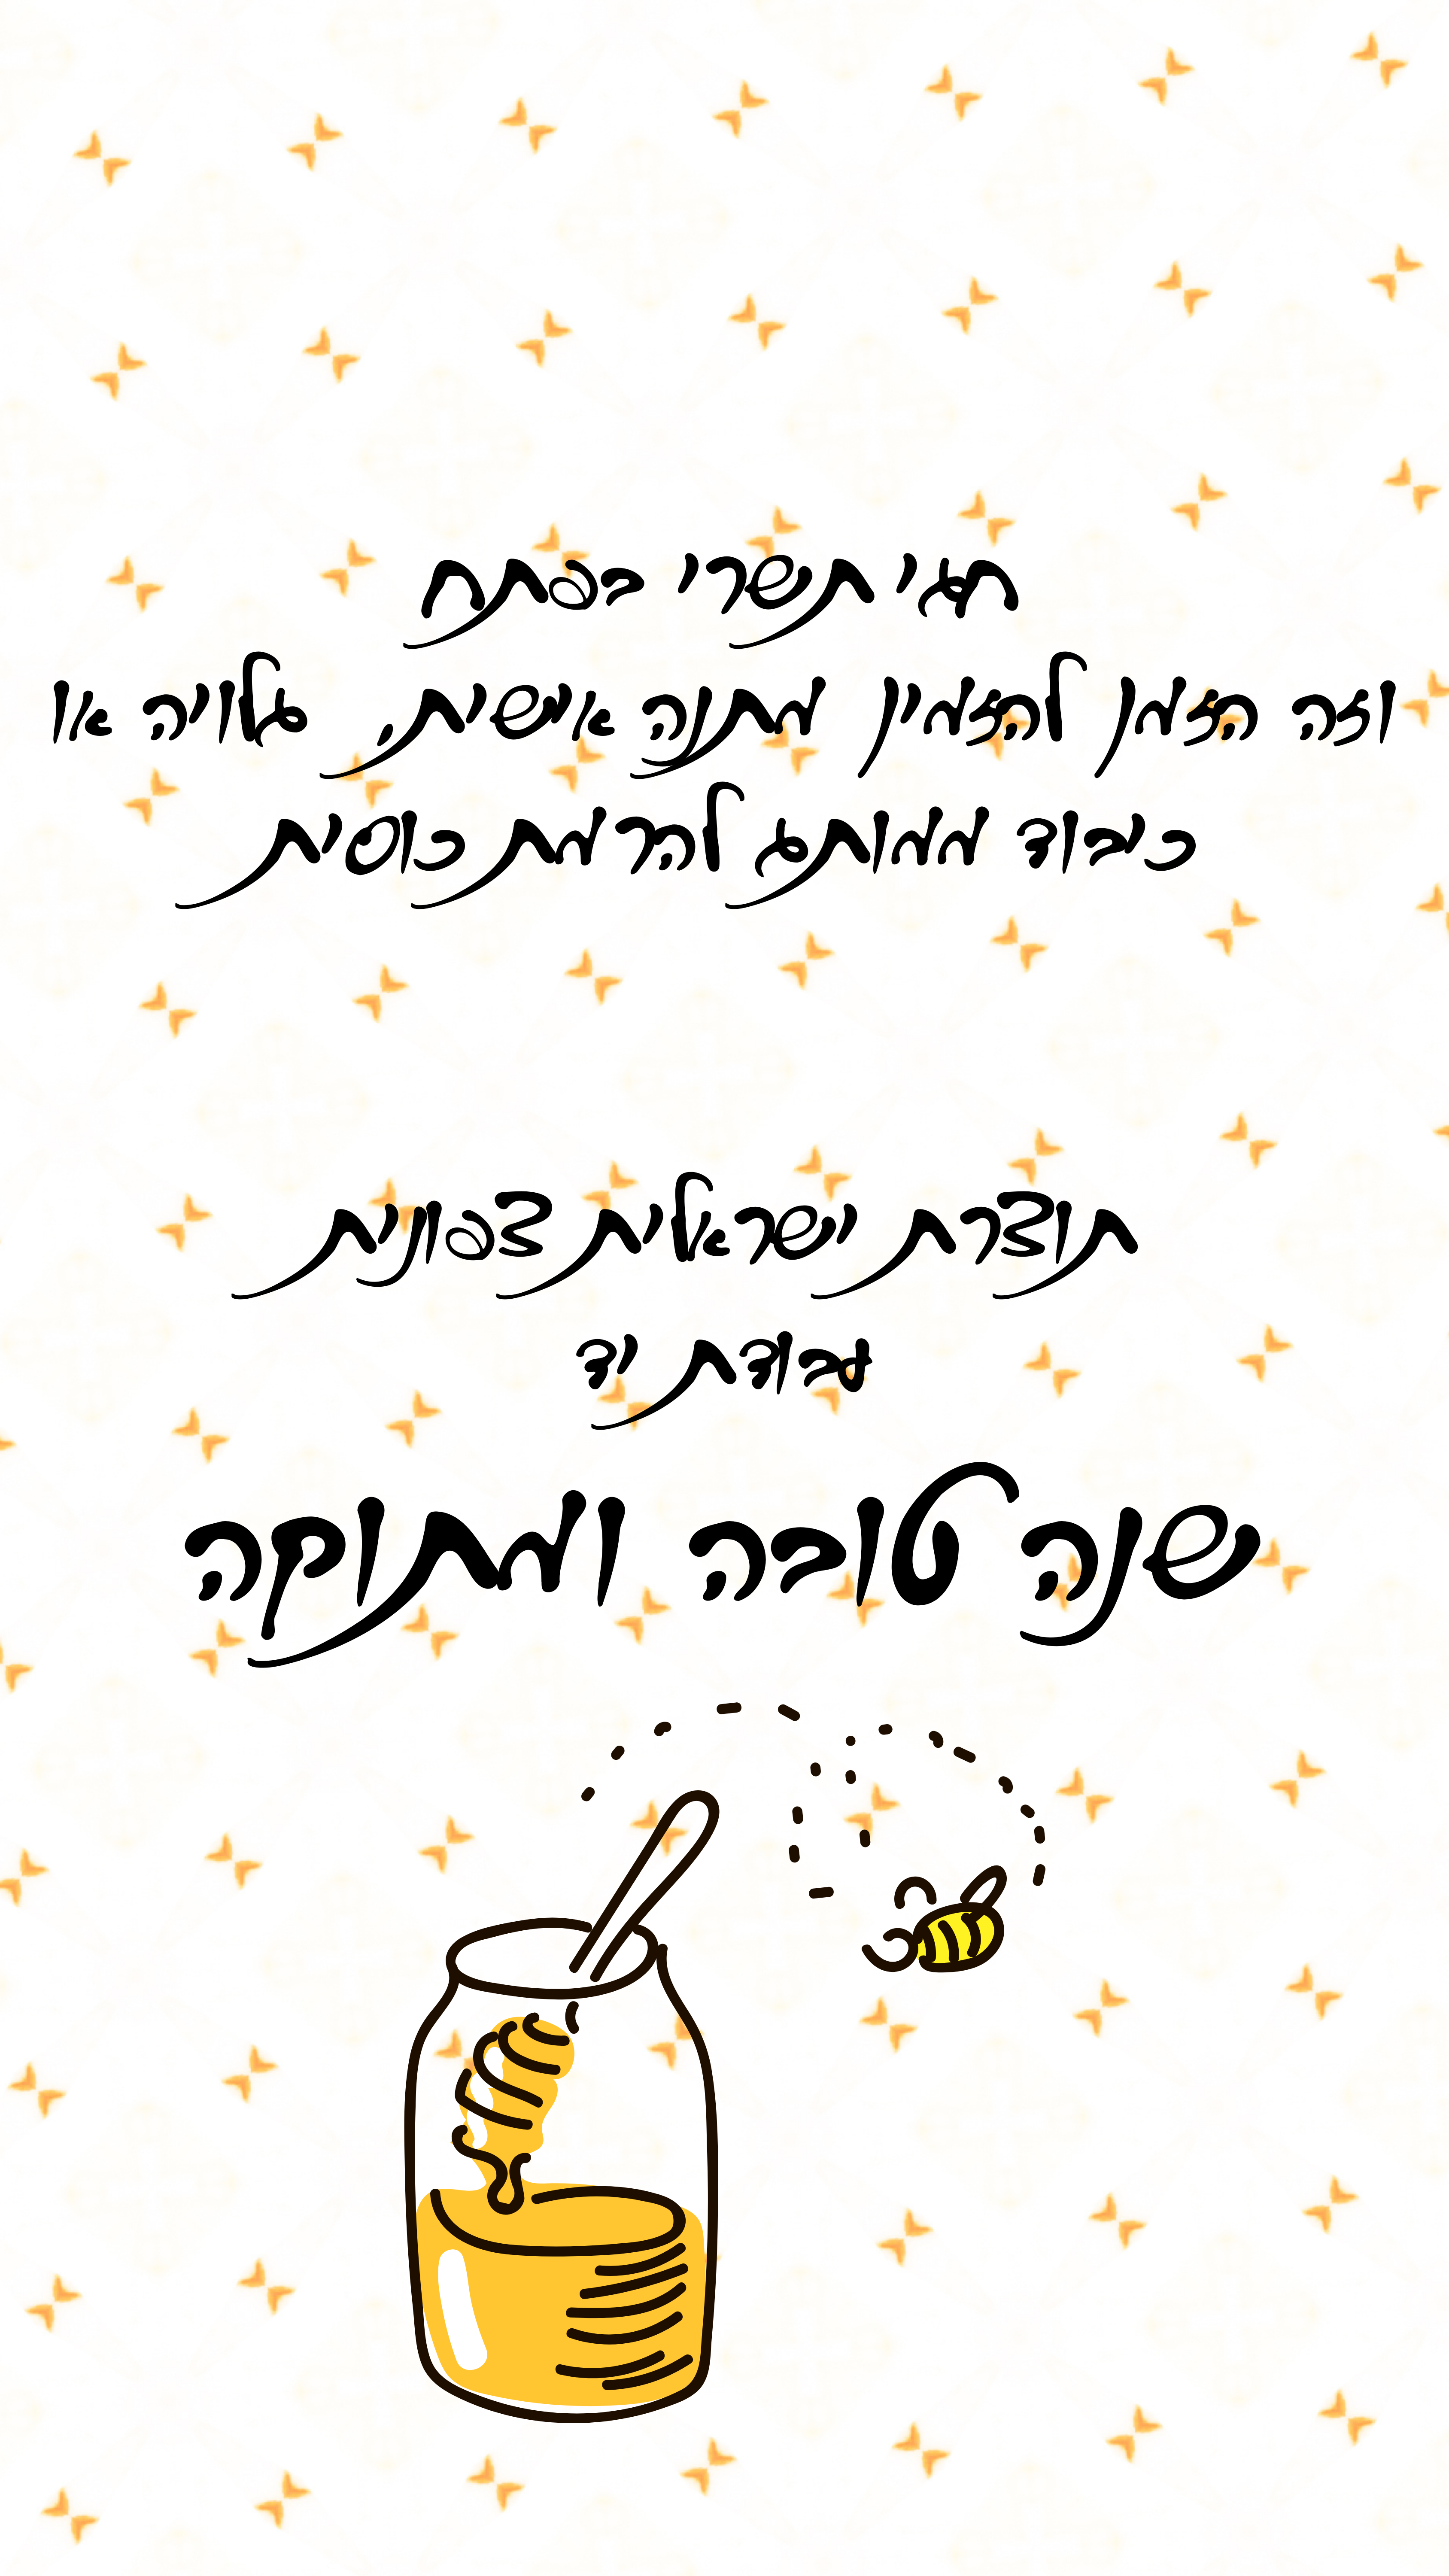 חגי תשרי בפתח
וזה הזמן להזמין מתנה אישית, גלויה או
כיבוד ממותג להרמת כוסית
תוצרת ישראלית צפונית
עבודת יד
שנה טובה ומתוקה